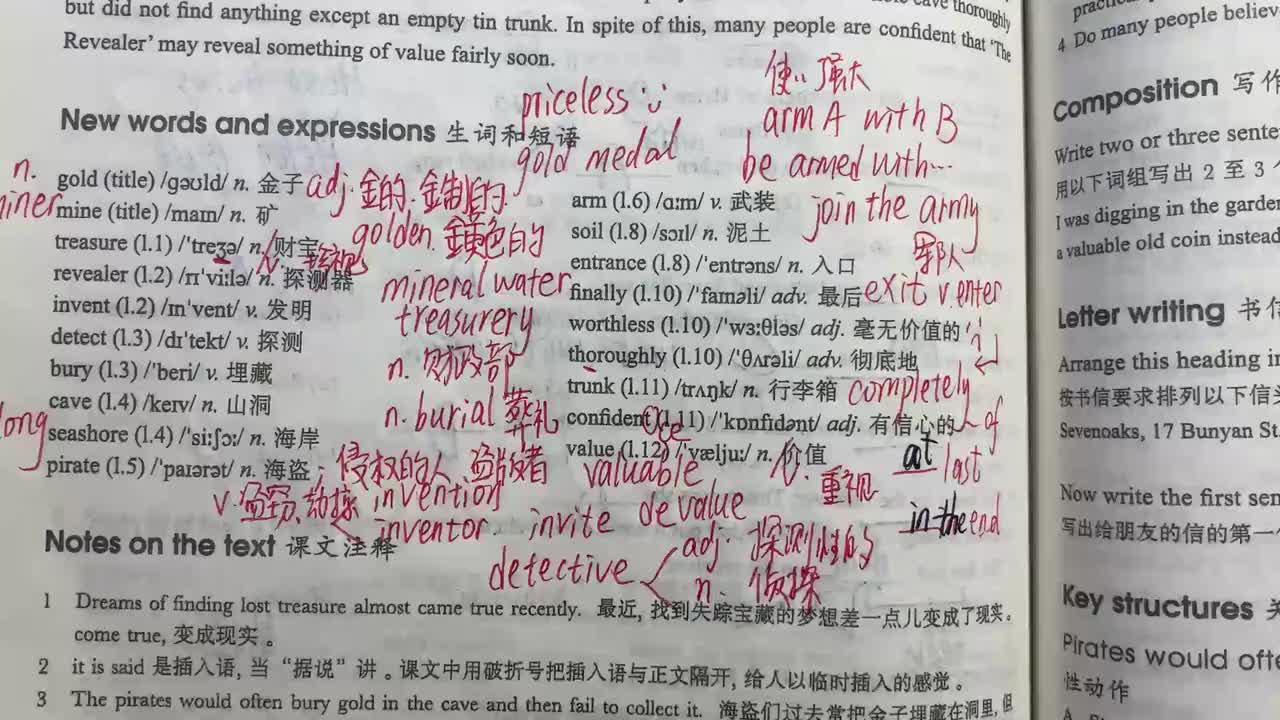 but did not find anything except an empty tin trunk. In spite of this, many people are confident that 'The
Revealer' may reveal something of value fairly soon.
New words and expressions 生词和短语
priceless
gold medal
使 强大
arm A with B
be armed with…
join the army
军队
n.
miner
gold (title) /ɡəʊld/ n. 金子
adj. 金的. 金制的.
mine (title) /maɪn/ n. 矿
golden. 金黄色的
treasure (l.1) /'treʒə/ n./财宝
v. 珍视
revealer (l.2) /rɪ'viːlə/ n. 探测器
mineral water
invent (l.2) /ɪn'vent/ v. 发明
treasurery
detect (l.3) /dɪ'tekt/ v. 探测
n. 财政部
bury (l.3) /'beri/ v. 埋藏
cave (l.4) /keɪv/ n. 山洞
n. burial 葬礼
long
seashore (l.4) /'siːʃɔː/ n. 海岸
pirate (l.5) /'paɪərət/ n. 海盗
; 侵权的人 盗版者
v. 盗窃. 劫掠
invention
inventor. invite
arm (l.6) /ɑːm/ v. 武装
soil (l.8) /sɔɪl/ n. 泥土
entrance (l.8) /'entrəns/ n. 入口
finally (l.10) /'faɪnəli/ adv. 最后
exit v enter
worthless (l.10) /'wɜːθləs/ adj. 毫无价值的
thoroughly (l.10) /'θʌrəli/ adv. 彻底地
trunk (l.11) /trʌŋk/ n. 行李箱
completely
confident (l.11) /'kɒnfɪdənt/ adj. 有信心的
of
ce
value (l.12) /'væljuː/ n. 价值
v. 重视
at last
in the end
valuable
devalue
detective
adj. 探测性的
n. 侦探
Notes on the text 课文注释
1 Dreams of finding lost treasure almost came true recently. 最近, 找到失踪宝藏的梦想差一点儿变成了现实。
come true, 变成现实。
2 it is said 是插入语, 当“据说”讲。课文中用破折号把插入语与正文隔开, 给人以临时插入的感觉。
3 The pirates would often bury gold in the cave and then fail to collect it. 海盗们过去常把金子埋藏在洞里, 但
4 Do many people believ
Composition 写作
Write two or three sente
用以下词组写出 2 至 3
I was digging in the garden
a valuable old coin instead
Letter writing 书信
Arrange this heading in
按书信要求排列以下信
Sevenoaks, 17 Bunyan St
Now write the first sen
写出给朋友的信的第一
Key structures 关
Pirates would ofte
性动作